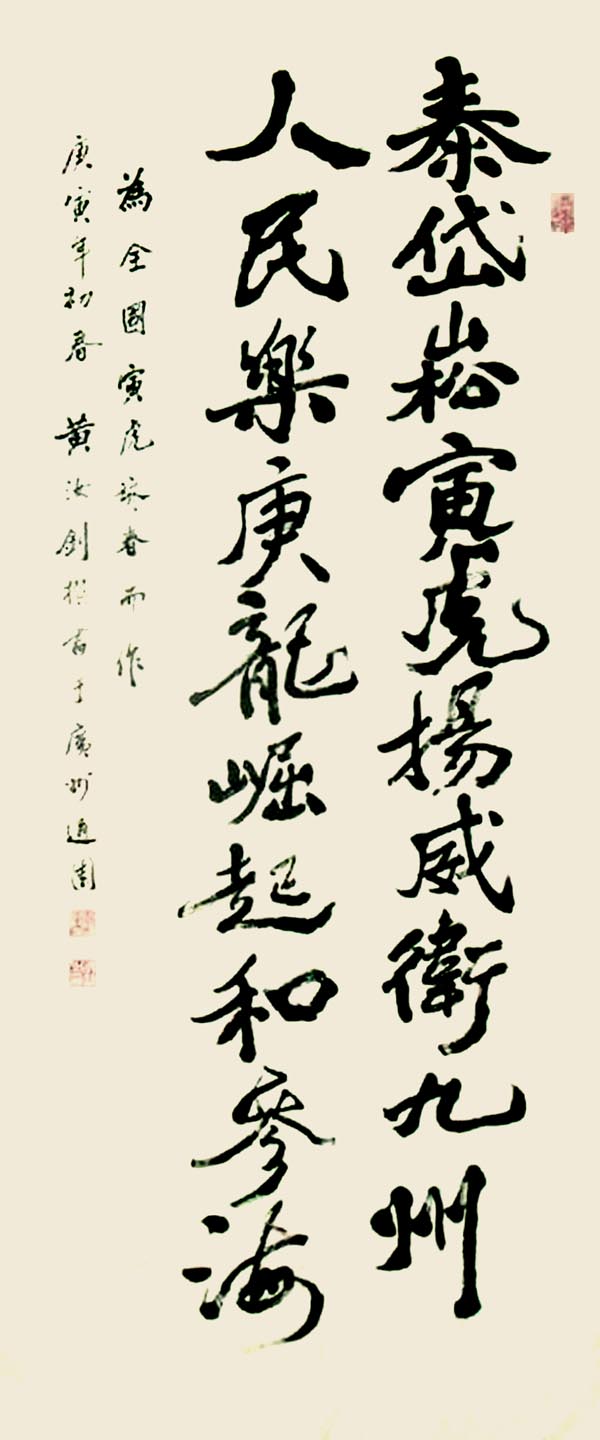 泰岱崧寅虎揚威衛九州
人民樂庚龍崛起和參海
為全國寅虎春而作
庚寅年初春 黃汝劍撰書于廣州園